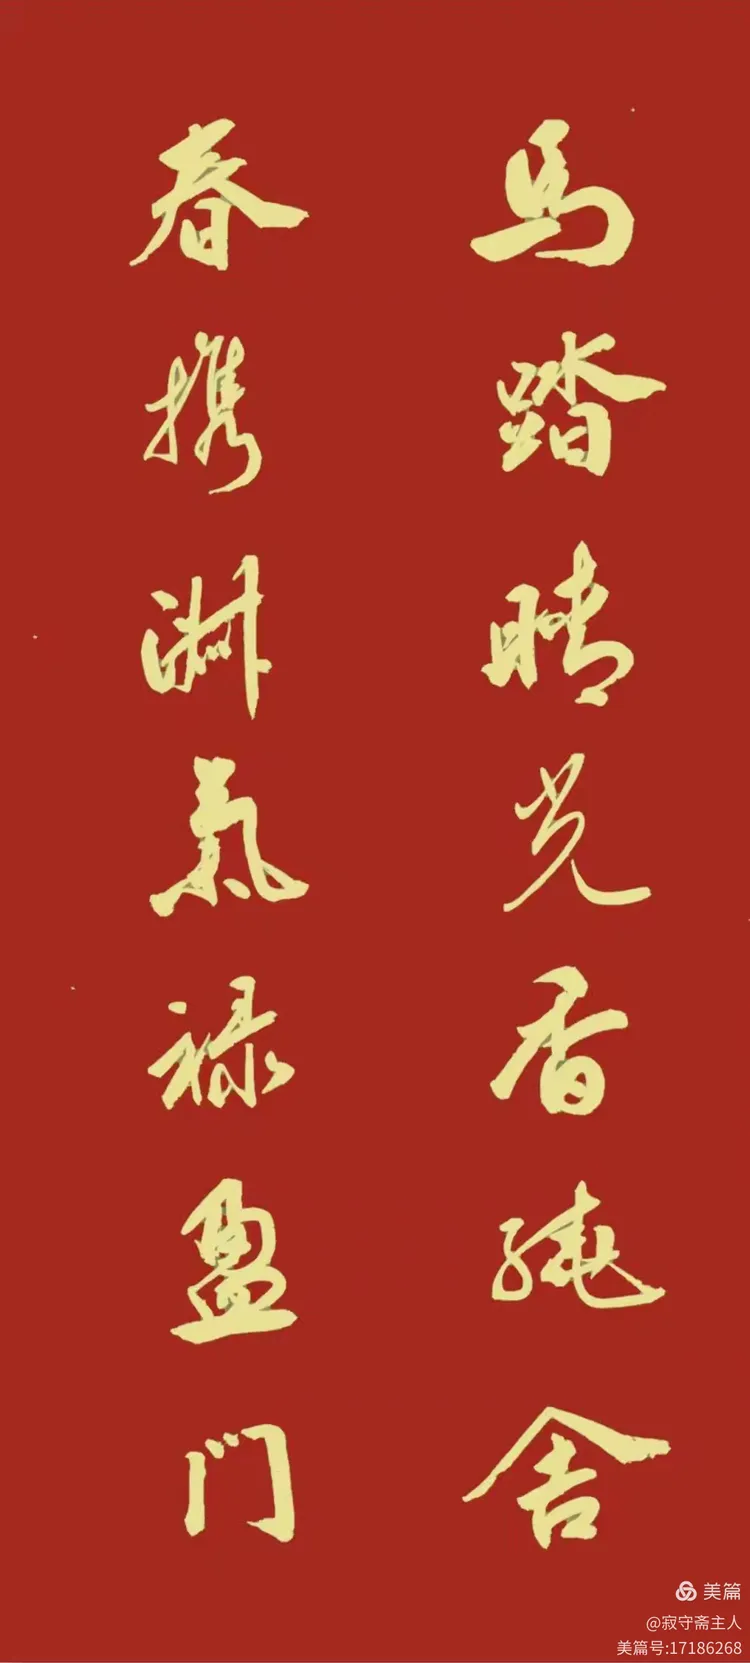 馬踏晴光香绕舍
春携淑氣禄盈门
美篇
@寂守斋主人
美篇号:17186268